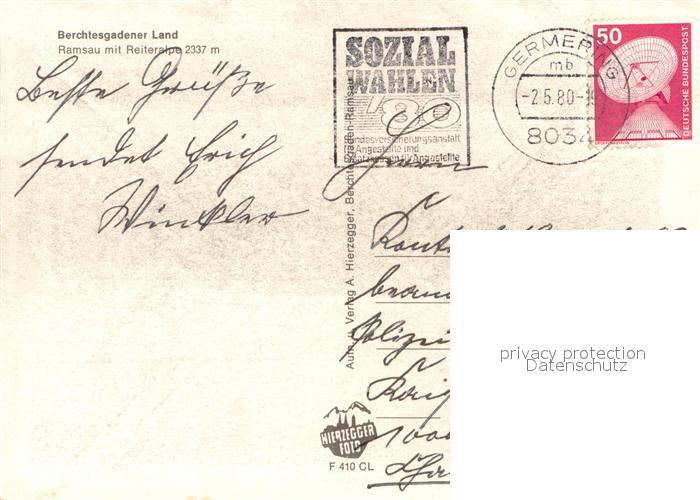 Berchtesgadener Land
Ramsau mit Reiteralpe 2337 m
Beste Grüße
sendet Erich
Winkler
SOZIAL
WAHLEN
'80
Bundesversicherungsanstalt
Angestellte und
für Angestellte
GERMERING
mb
-2.5.80-
8034
50
DEUTSCHE BUNDESPOST
Herrn
Polizei
1000
Aufn. u. Verlag A. Hierzegger, Berchtesgaden-Ramsau
HIERZEGGER
FOTO
F 410 CL
privacy protection
Datenschutz